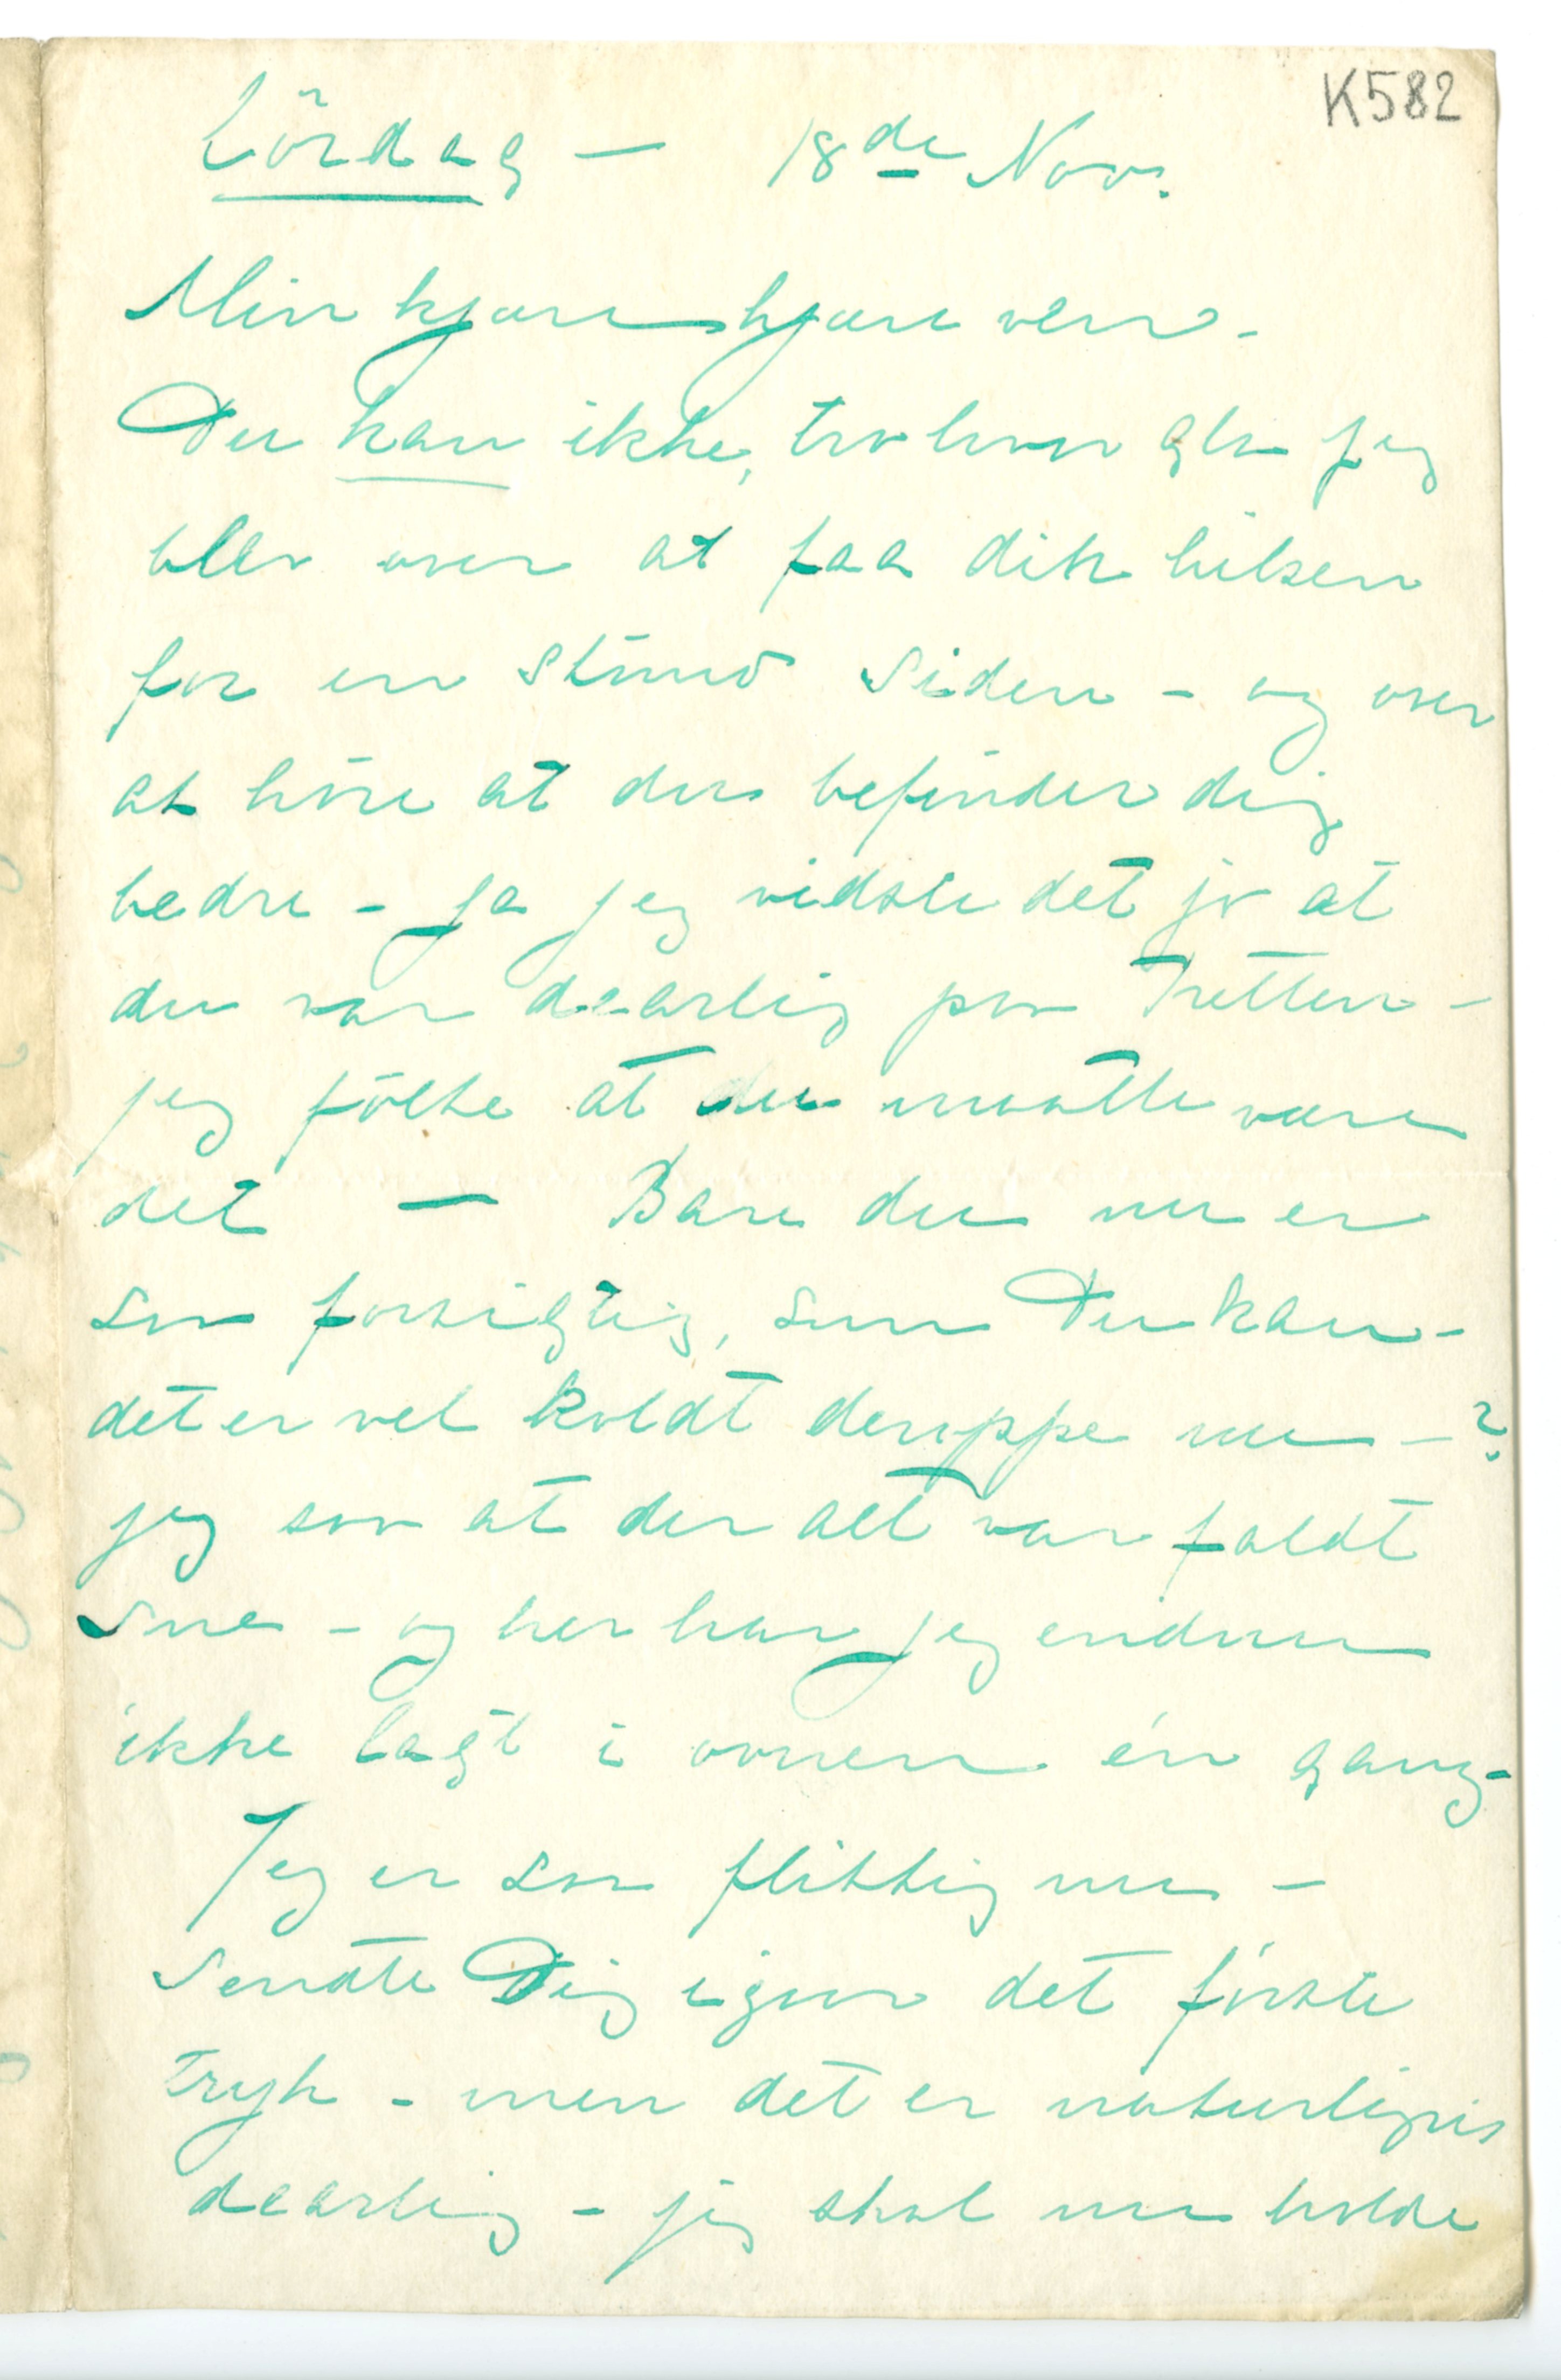 K582
Lördag — 18de Nov.
Min kjære kjære ven -
Du kan ikke, tro hvor gla jeg
blev over at faa dit hilsen
for en stund siden - og over
at höre at du befinder dig
bedre - ja jeg vidste det jo at
du var daarlig paa Tretten -
jeg fölte at du maatte være
det — Bare du nu er
saa forsigtig, som Du kan -
det er vel koldt deroppe nu - ?
jeg saa at der alt var faldt
sne - og her har jeg endnu
ikke lagt i ovnen én gang -
Jeg er saa flittig nu -
sendte Dig igaar det förste
tryk - men det er naturligvis
daarlig - jeg skal nu holde